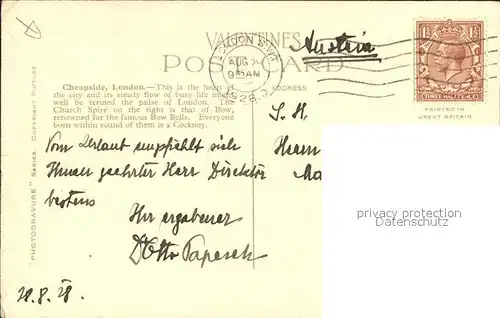 VALENTINES
POST CARD
Austria
LONDON S.W.1
AUG 2
9 15 AM
1928
1½ 1½
THREE HALF PENCE
PRINTED IN
GREAT BRITAIN
Cheapside, London.—This is the heart of
the city and its steady flow of busy life might
well be termed the pulse of London. The
Church Spire on the right is that of Bow,
renowned for the famous Bow Bells. Everyone
born within sound of them is a Cockney.
ADDRESS
S. H.
Herrn
Ma
"PHOTOGRAVURE" SERIES. COPYRIGHT PICTURE
Vom Urlaub empfiehlt sich
Ihnen geehrter Herr Direktor
bestens
Ihr ergebener
Dr Otto Papesch
28.8.28.
privacy protection
Datenschutz